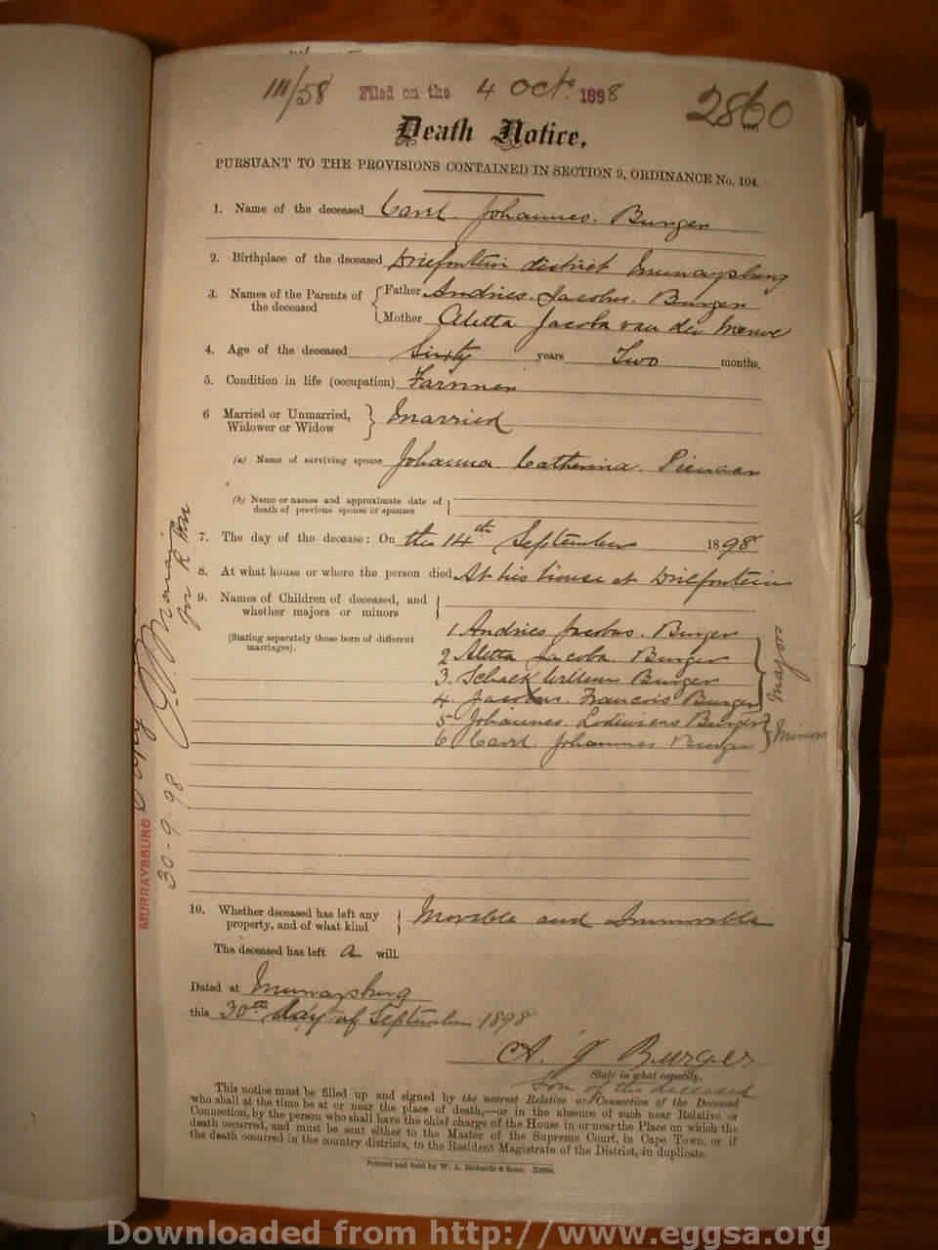 111/58 Filed on the 4 Oct. 1898 2860
Death Notice.
PURSUANT TO THE PROVISIONS CONTAINED IN SECTION 9, ORDINANCE No. 104.
1. Name of the deceased Carel Johannes Burger
2. Birthplace of the deceased Driefontein district Murraysburg
3. Names of the Parents of the deceased { Father Andries Jacobus Burger
Mother Aletta Jacoba van der Merwe
4. Age of the deceased Sixty years Two months.
5. Condition in life (occupation) Farmer
6 Married or Unmarried, Widower or Widow } Married
(a) Name of surviving spouse Johanna Catherina Pienaar
(b) Name or names and approximate date of death of previous spouse or spouses
7. The day of the decease: On the 14th September 1898
8. At what house or where the person died At his house at Driefontein
9. Names of Children of deceased, and whether majors or minors
(Stating separately those born of different marriages).
1 Andries Jacobus Burger
2 Aletta Jacoba Burger
3. Schalk Willem Burger
4. Jacobus Francois Burger
Majors
5 Johannes Burger
6 Carel Johannes Burger
Minors
10. Whether deceased has left any property, and of what kind } Movable and Immovable
The deceased has left a will.
Dated at Murraysburg
this 30th day of September 1898
A. J Burger
State in what capacity.
Son of the deceased
This notice must be filled up and signed by the nearest Relative or Connection of the Deceased
who shall at the time be at or near the place of death,—or in the absence of such near Relative or
Connection, by the person who shall have the chief charge of the House in or near the Place on which the
death occurred, and must be sent either to the Master of the Supreme Court, in Cape Town, or if
the death occurred in the country districts, to the Resident Magistrate of the District, in duplicate.
Printed and Sold by W. A. Richards & Sons.
MURRAYSBURG
30-9-98
Downloaded from http://www.eggsa.org